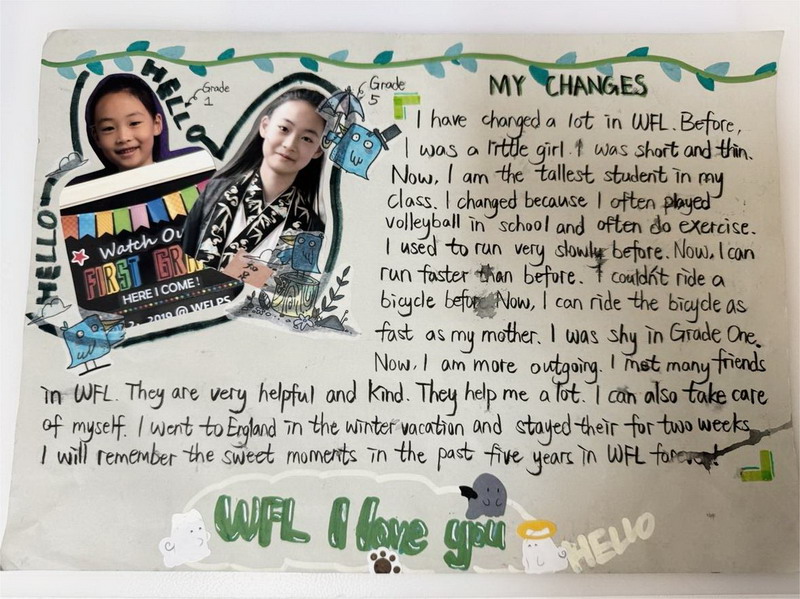 HELLO
Grade
1
Grade
5
HELLO
Watch Ou
FIRST GRA
HERE I COME!
2019 @ WFLPS
MY CHANGES
I have changed a lot in WFL. Before,
I was a little girl. I was short and thin.
Now, I am the tallest student in my
class. I changed because I often played
volleyball in school and often do exercise.
I used to run very slowly before. Now, I can
run faster than before. I couldn't ride a
bicycle before. Now, I can ride the bicycle as
fast as my mother. I was shy in Grade One.
Now, I am more outgoing. I met many friends
in WFL. They are very helpful and kind. They help me a lot. I can also take care
of myself. I went to England in the winter vacation and stayed their for two weeks.
I will remember the sweet moments in the past five years in WFL forever!
WFL I love you
HELLO